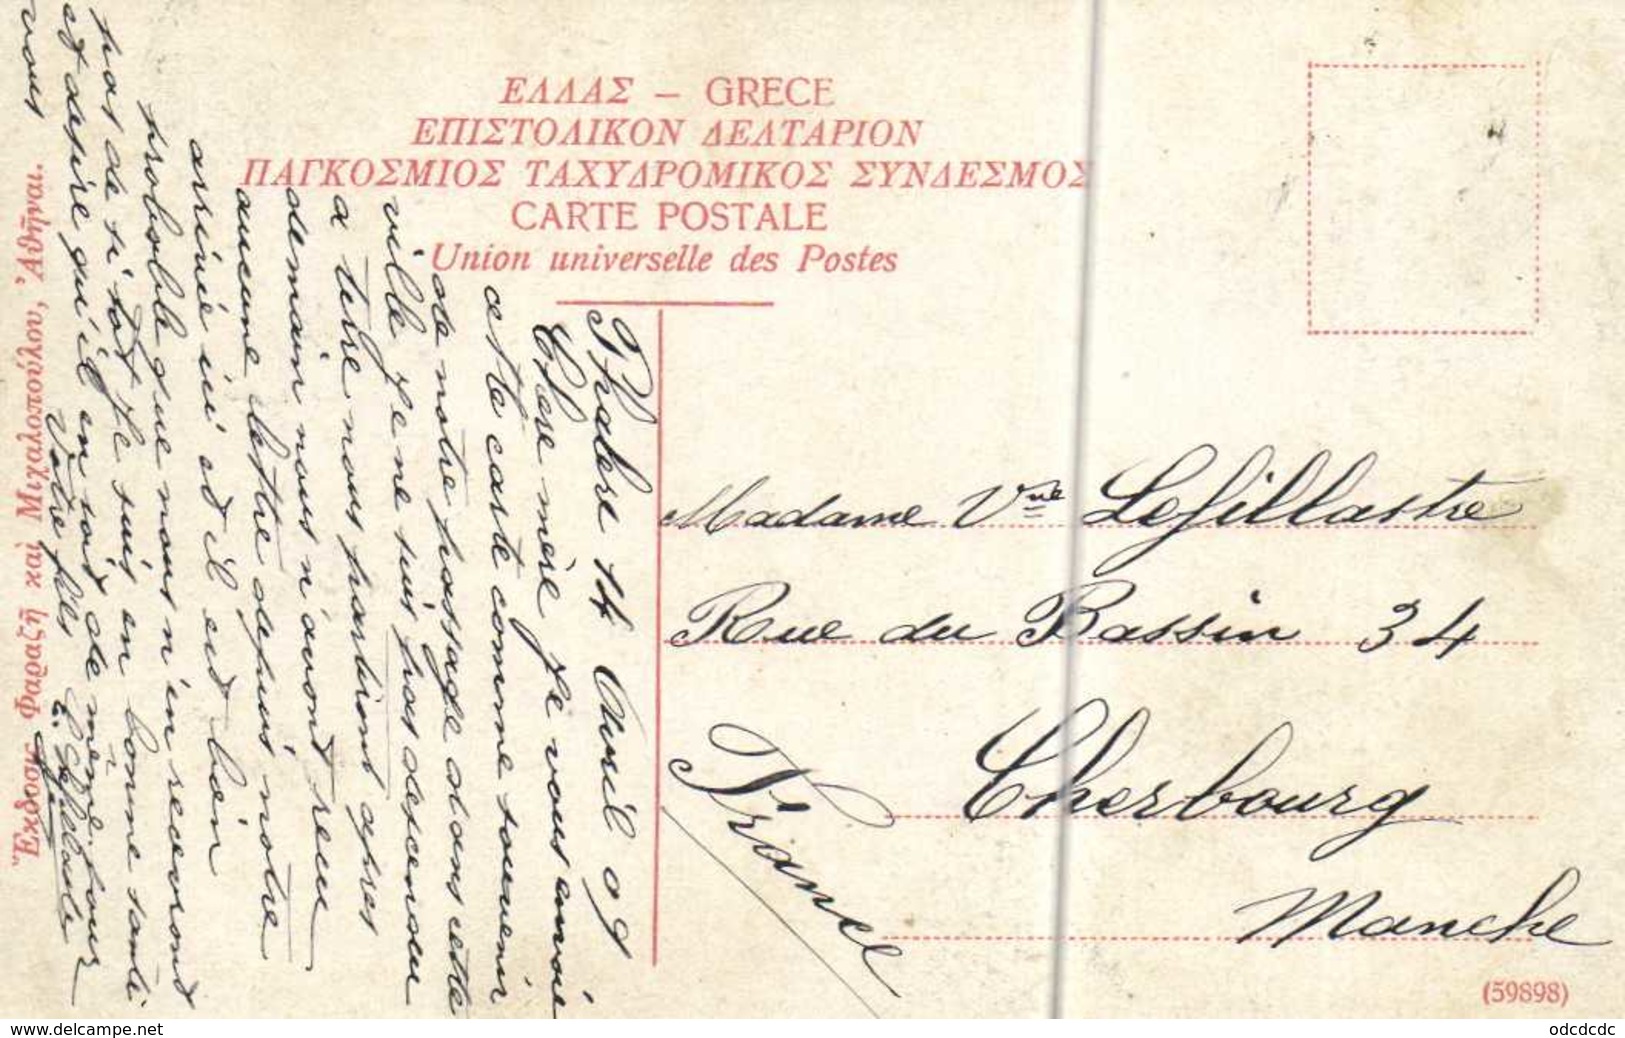 ΕΛΛΑΣ – GRECE
ΕΠΙΣΤΟΛΙΚΟΝ ΔΕΛΤΑΡΙΟΝ
ΠΑΓΚΟΣΜΙΟΣ ΤΑΧΥΔΡΟΜΙΚΟΣ ΣΥΝΔΕΣΜΟΣ
CARTE POSTALE
Union universelle des Postes
Phalere 14 Avril 09
Chere mère je vous envoie
cette carte comme souvenir
de notre passage dans cette
ville je ne suis pas descendu
a terre nous partions apres
demain nous n'avont reçu
aucune lettre depuis notre
arrivé ici et il est bien
probable que nous n'en recevront
pas de si tot je suis en bonne santé
et desire qu'il en soit de meme pour
vous
Votre fils
E. Lefillastre
Ἔκδοσις Φαραζῆ καὶ Μιχαλοπούλου, Ἀθῆναι.
Madame Vve Lefillastre
Rue du Bassin 34
Cherbourg
Manche
France
(59898)
www.delcampe.net
odcdcdc